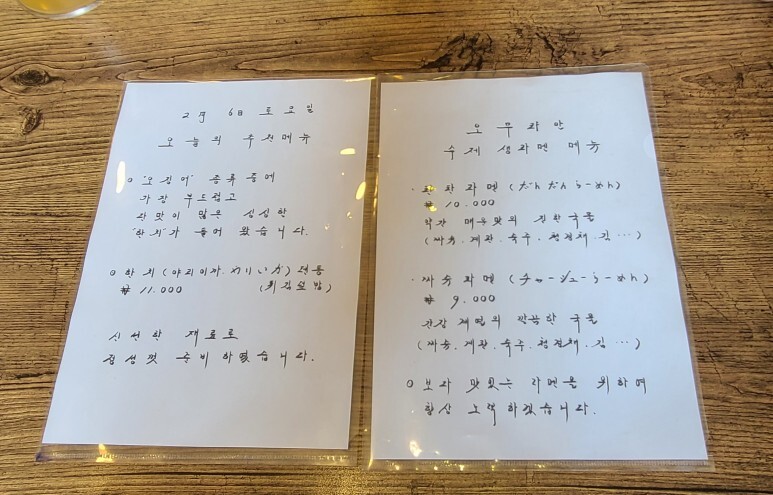 2月 6日 토요일
오늘의 추천메뉴
○ "오징어" 종류중에
가장 부드럽고
단맛이 많은 싱싱한
"한치"가 들어 왔습니다.
○ 한치(야리이까. やりいか) 텐동
₩ 11.000 (튀김덮밥)
신선한 재료로
정성껏 준비하였습니다.
오무라안
수제 생라멘 메뉴
· 탄탄라멘 (だんだんらーめん)
₩ 10.000
약간 매운맛의 진한국물
(차슈. 계란. 숙주. 청경채. 김…)
· 차슈라멘 (ちゃーしゅーらーめん)
₩ 9.000
간장 재법의 깔끔한 국물
(차슈. 계란. 숙주. 청경채. 김…)
○ 보다 맛있는 라멘을 위하여
항상 노력하겠습니다.